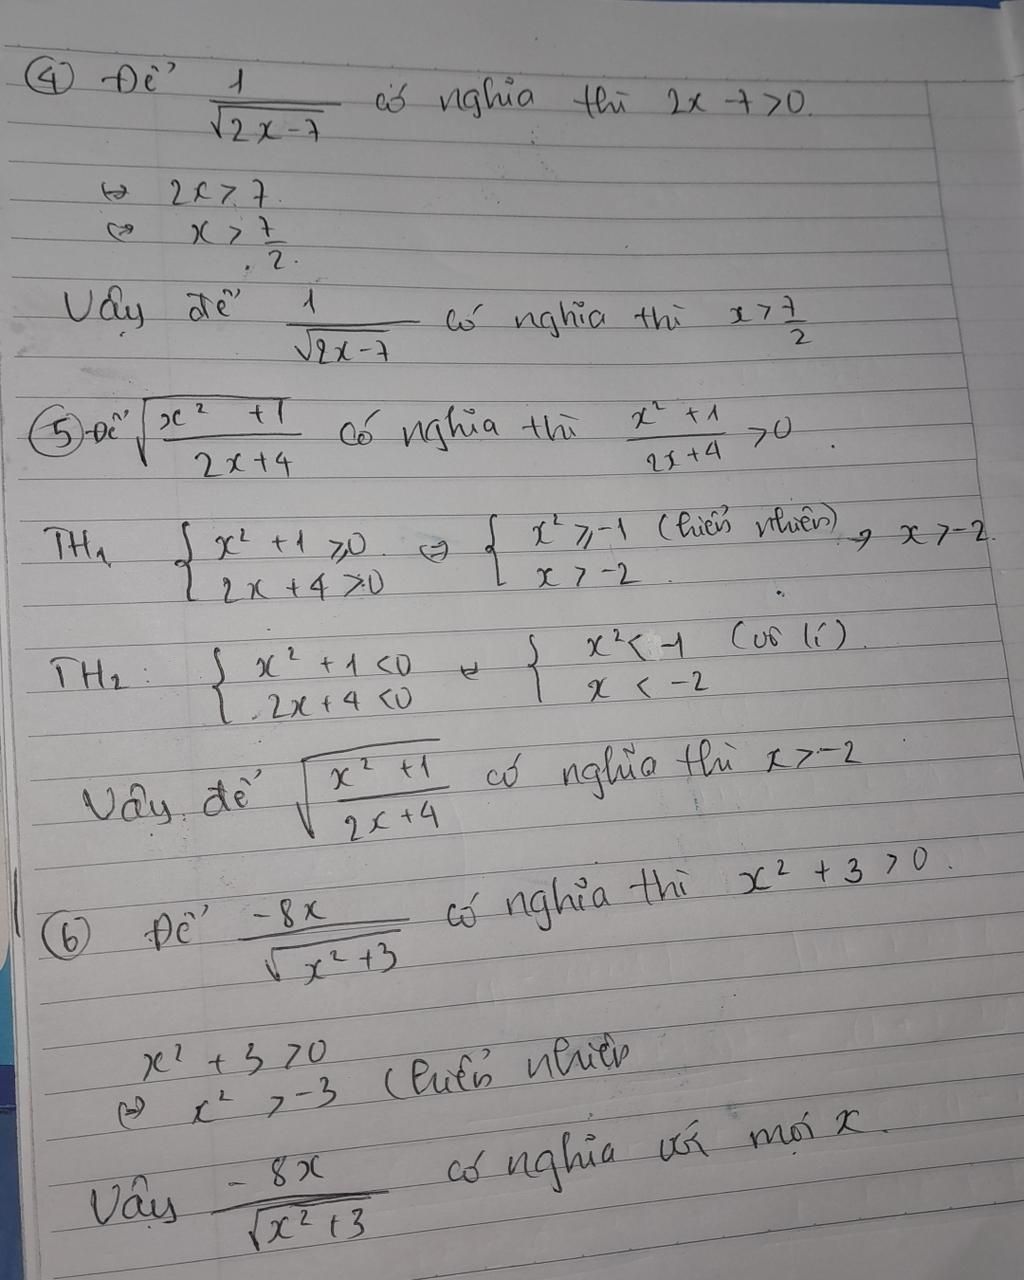 ④ Để 1/√(2x-7) có nghĩa thì 2x-7>0.
⇔ 2x>7.
⇔ x>7/2.
Vậy để 1/√(2x-7) có nghĩa thì x>7/2
⑤ Để √((x²+1)/(2x+4)) có nghĩa thì (x²+1)/(2x+4) >0.
TH₁ { x²+1⩾0 ⇔ { x²⩾-1 (hiển nhiên) → x>-2.
2x+4>0 x>-2.
TH₂: { x²+1<0 ⇔ { x²<-1 (vô lí).
2x+4<0 x<-2
Vậy để √((x²+1)/(2x+4)) có nghĩa thì x>-2
⑥ Để -8x/√(x²+3) có nghĩa thì x²+3>0.
x²+3>0
⇔ x²>-3 (hiển nhiên
Vậy -8x/√(x²+3) có nghĩa với mọi x.